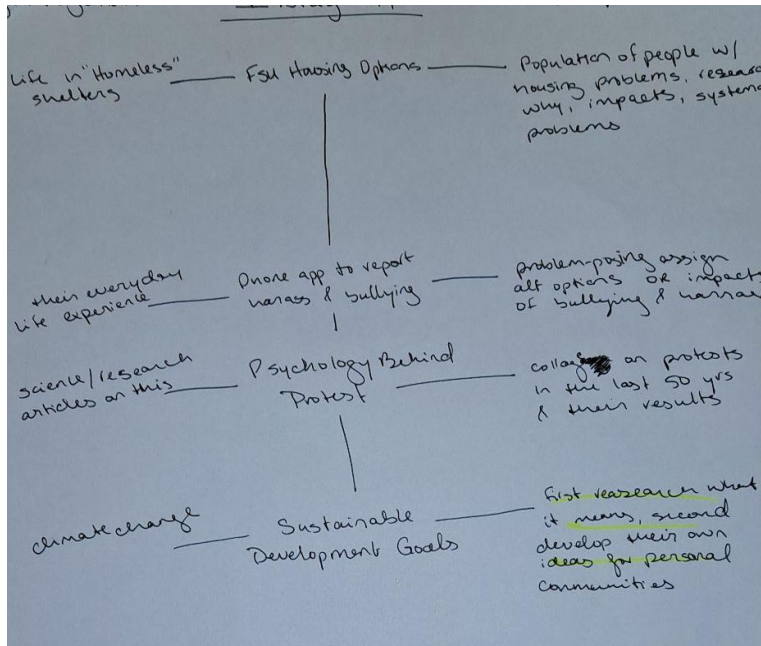 Life in "Homeless"
shelters
FSU Housing Options
Population of people w/
housing problems,
why, impacts,
problems
their everyday
life experience
Phone app to report
harass & bullying
problem-posing assign
alt options or impacts
of bullying &
science/research
articles on this
Psychology Behind
Protest
on protests
in the last 50 yrs
& their results
climate change
Sustainable
Development Goals
First reasearch what
it means, second
develop their own
ideas for personal
communities